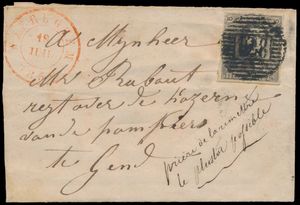 A Mynheer
Mr Prabout
regt over de kazern
van de pompiers
te Gend
prière de la remettre
le plustôt possible
10 10